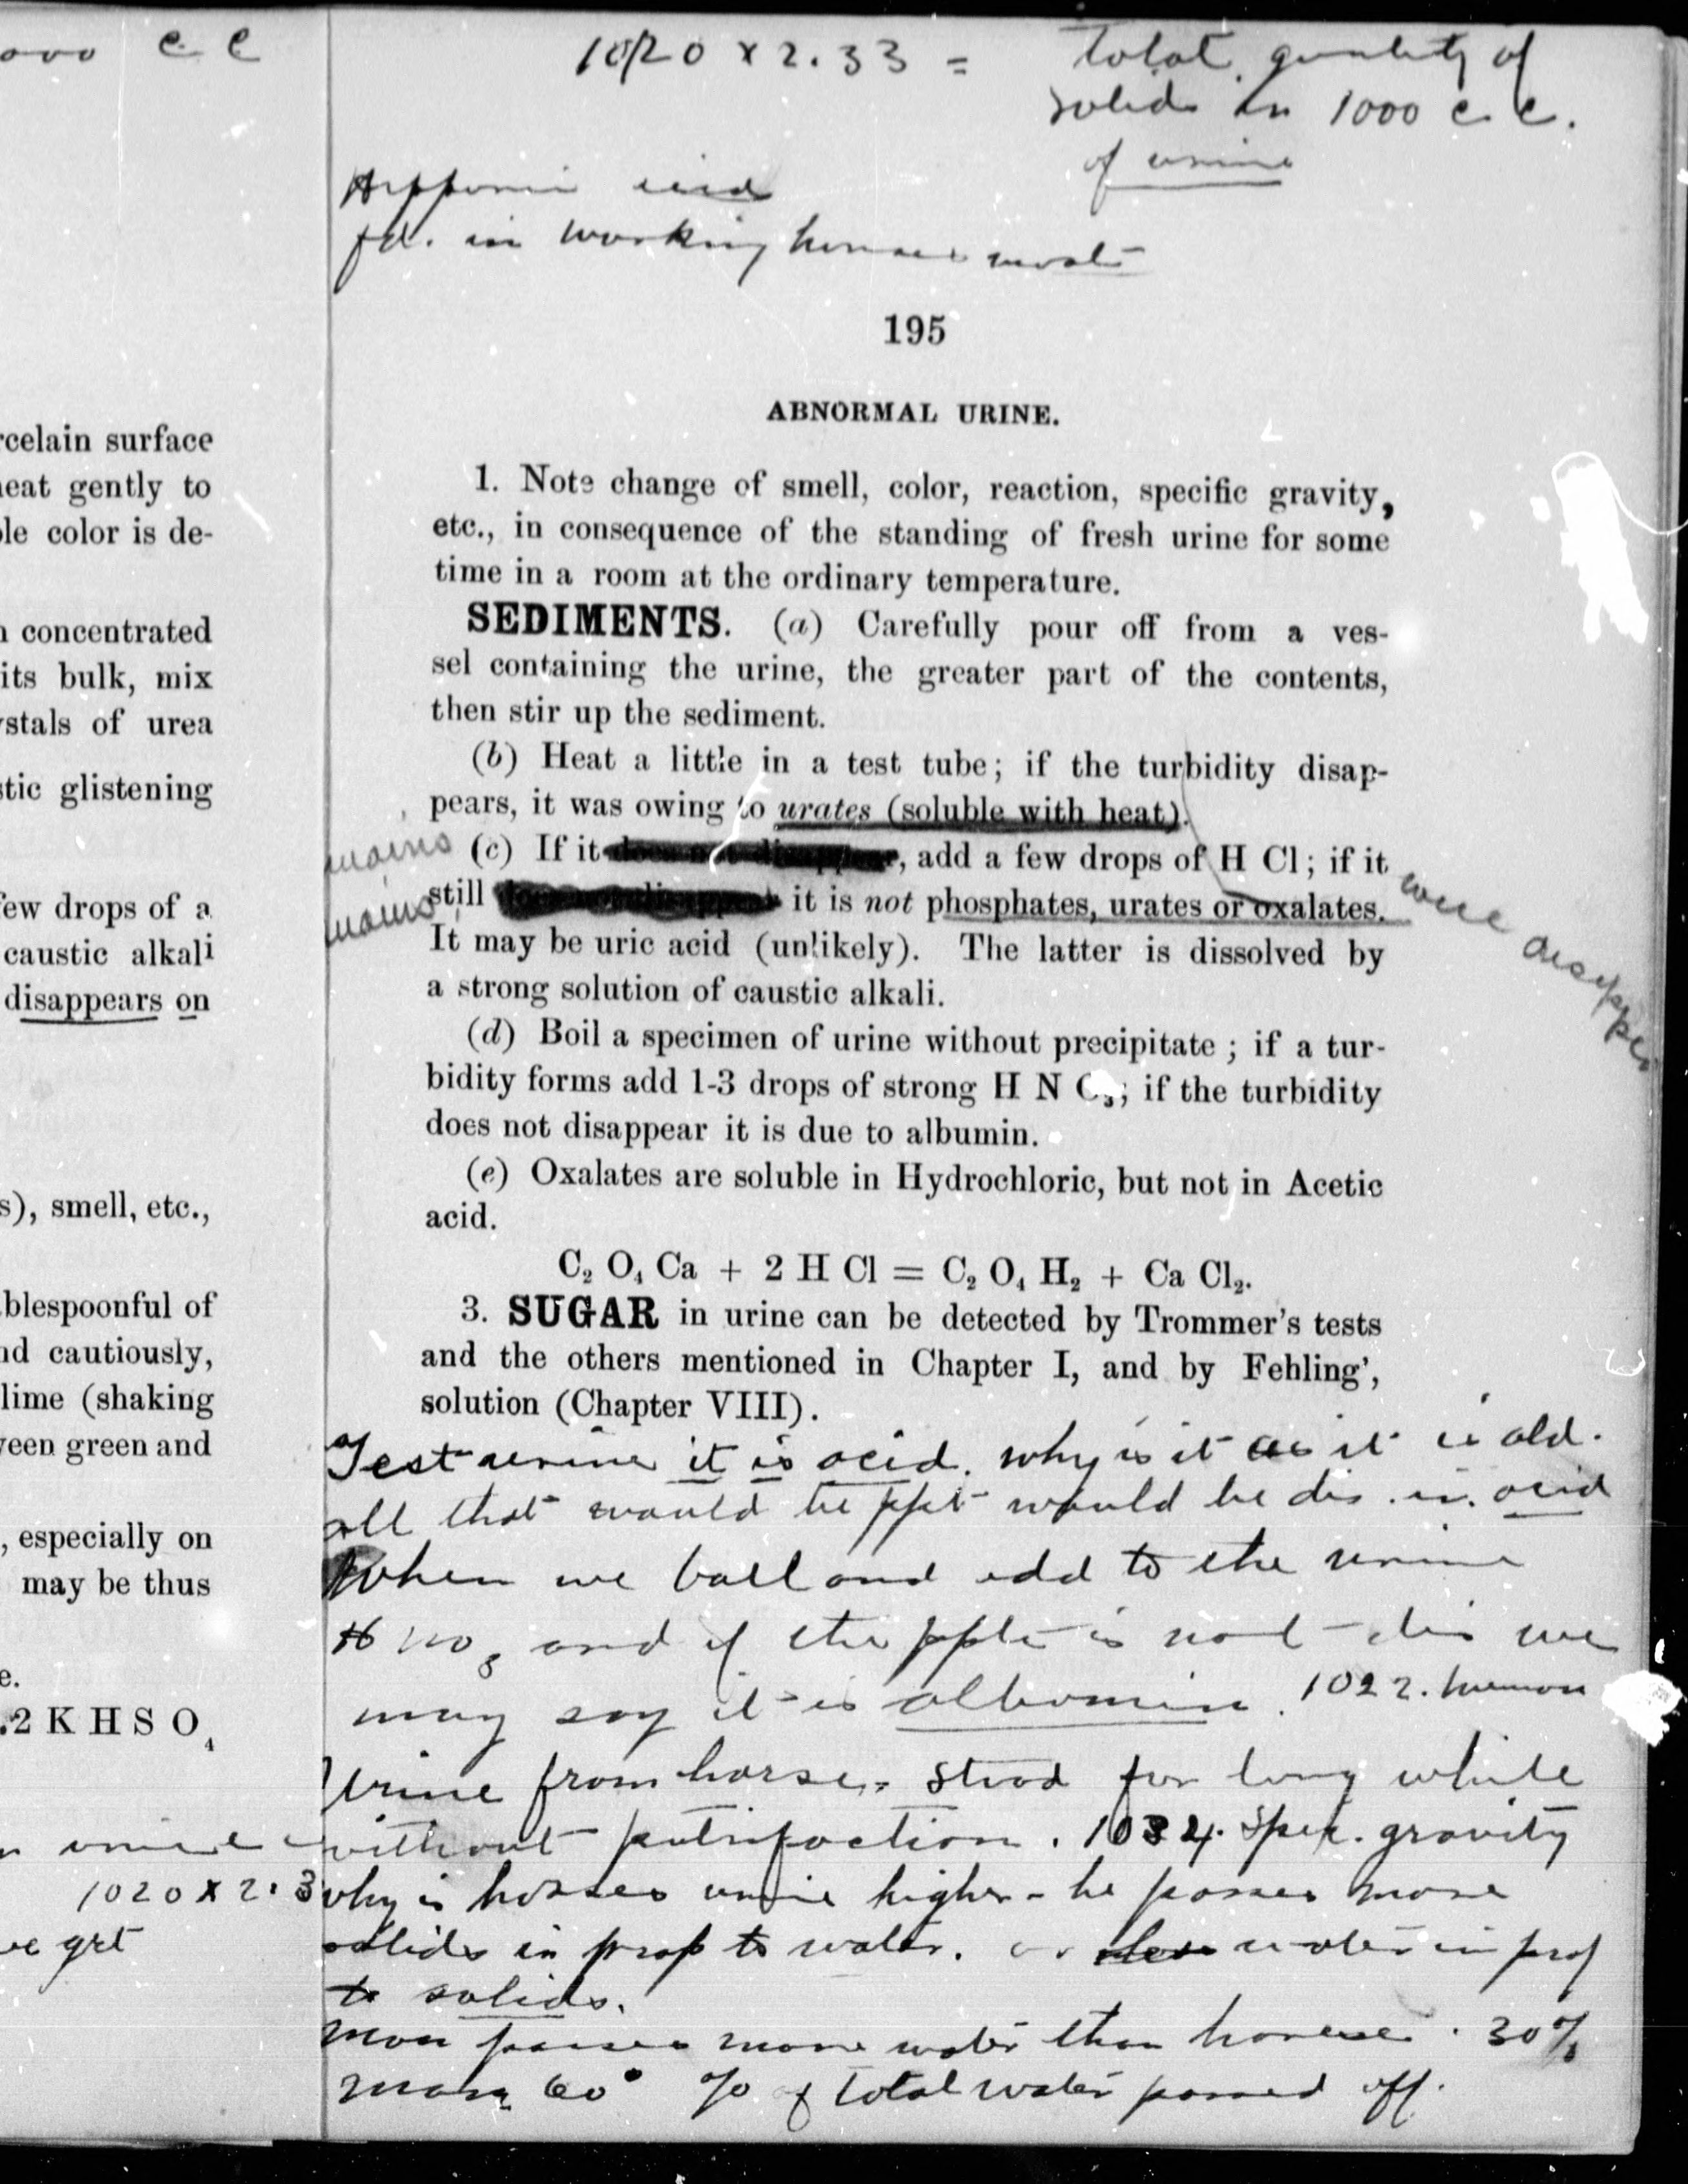 c c
1020 x 2.33 = total quantity of
solids in 1000 c. c.
of urine
Hippuric acid
fd. in working horses most
195
ABNORMAL URINE.
1. Note change of smell, color, reaction, specific gravity,
etc., in consequence of the standing of fresh urine for some
time in a room at the ordinary temperature.
SEDIMENTS. (a) Carefully pour off from a ves-
sel containing the urine, the greater part of the contents,
then stir up the sediment.
(b) Heat a little in a test tube; if the turbidity disap-
pears, it was owing to urates (soluble with heat).
(c) If it , add a few drops of H Cl; if it
still it is not phosphates, urates or oxalates.
It may be uric acid (unlikely). The latter is dissolved by
a strong solution of caustic alkali.
(d) Boil a specimen of urine without precipitate; if a tur-
bidity forms add 1-3 drops of strong H N O₃; if the turbidity
does not disappear it is due to albumin.
(e) Oxalates are soluble in Hydrochloric, but not in Acetic
acid.
C₂ O₄ Ca + 2 H Cl = C₂ O₄ H₂ + Ca Cl₂.
3. SUGAR in urine can be detected by Trommer's tests
and the others mentioned in Chapter I, and by Fehling',
solution (Chapter VIII).
Test urine it is acid. why is it as it is old.
all that would be ppt would be dis. in. acid
When we boil and add to the urine
H NO₃ and if the ppte is not dis we
may say it is albumin. 1022. human
Urine from horse. Stood for long while
without putrifaction. 1034. Spec. gravity
why is horses urine higher - he passes more
solids in prop to water. or less water in prop
to solids.
man passes more water than horse. 30%
man 60 % of total water passed off.
rcelain surface
heat gently to
ple color is de-
n concentrated
its bulk, mix
ystals of urea
stic glistening
few drops of a
caustic alkali
disappears on
s), smell, etc.,
blespoonful of
nd cautiously,
lime (shaking
ween green and
, especially on
may be thus
e.
.2 K H S O₄
1020 x 2.3
we get